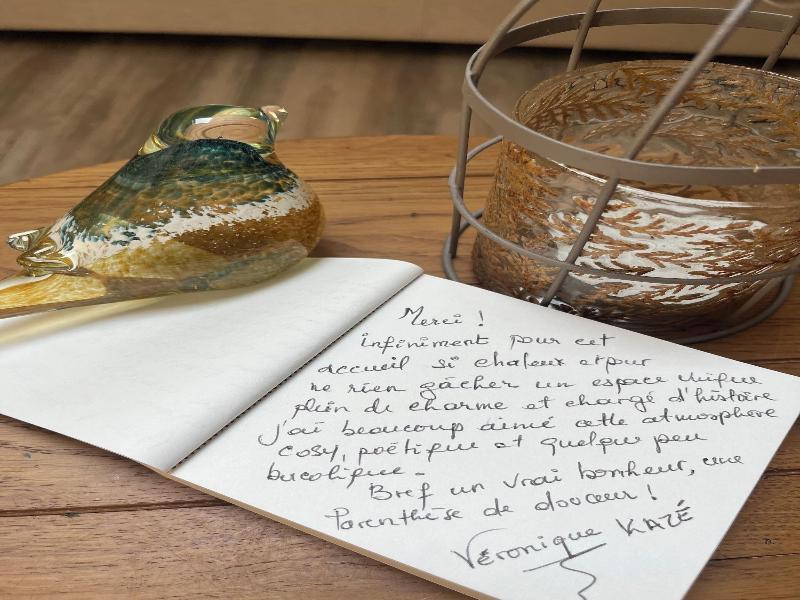 Merci !
infiniment pour cet
accueil si chaleur et pour
ne rien gâcher un espace unique
plein de charme et chargé d'histoire
j'ai beaucoup aimé cette atmosphère
cosy, poëtique et quelque peu
bucolique -
Bref un vrai bonheur, une
Parenthèse de douceur !
Véronique KAZÉ